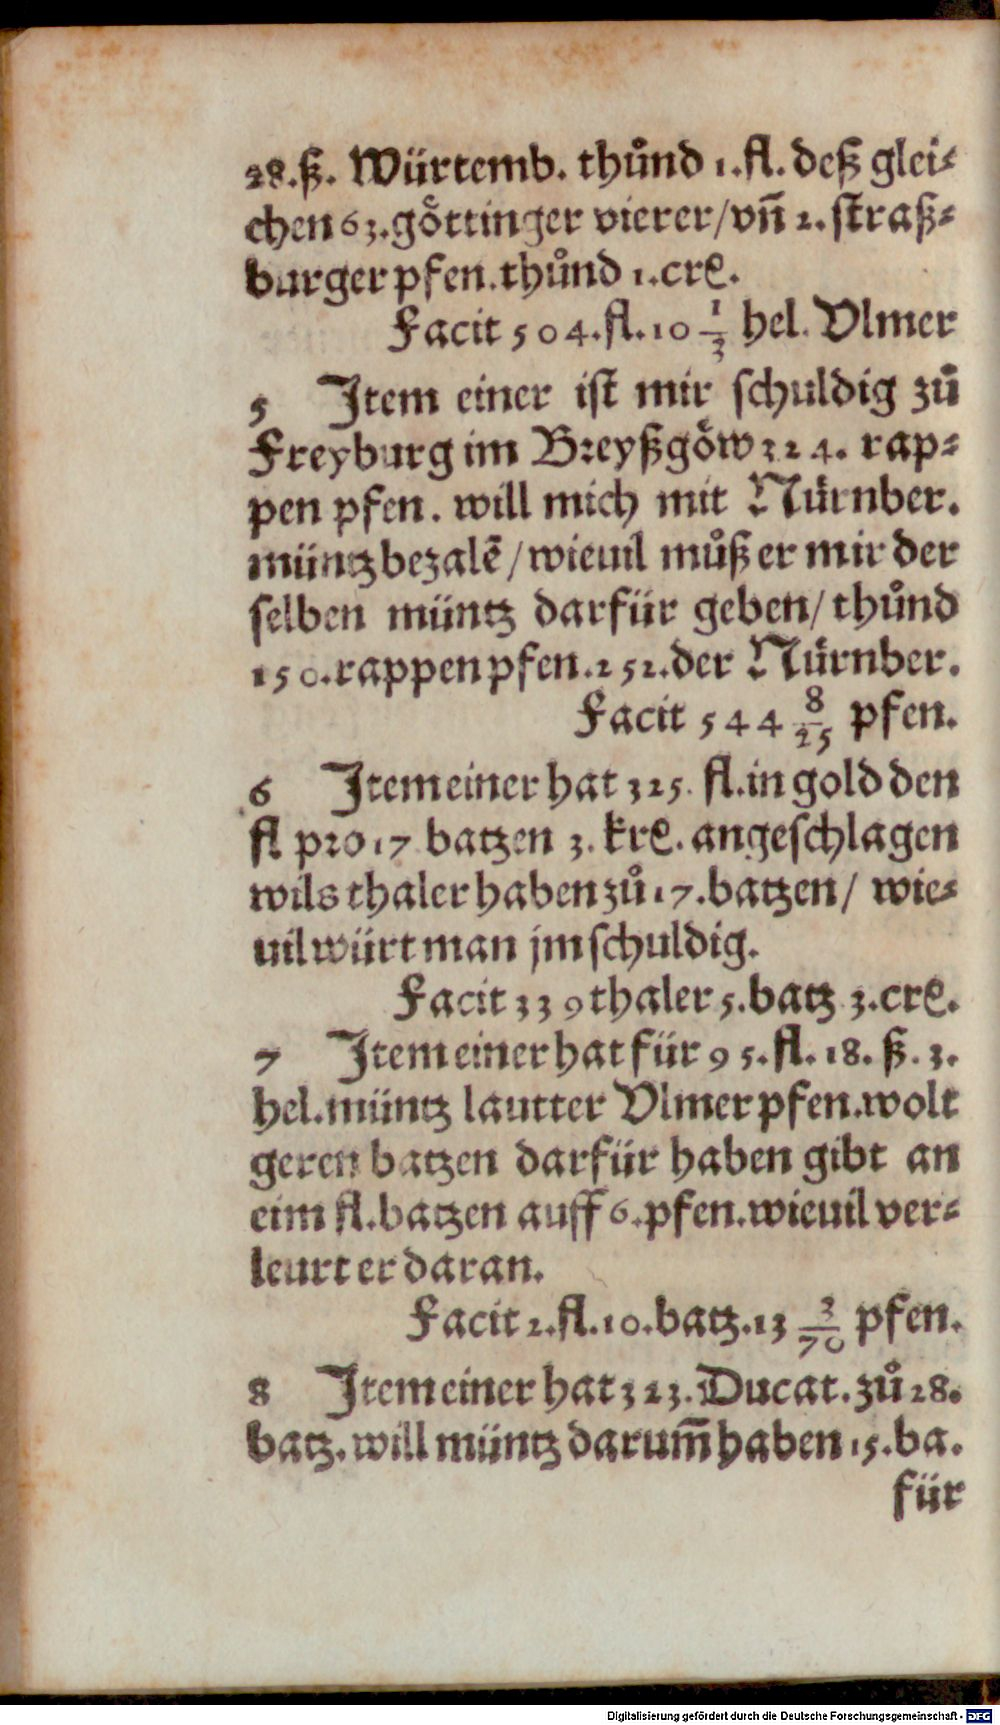 28.ß. Würtemb. thůnd 1.fl. deß glei⸗
chen 63.göttinger vierer/vñ 2. straß⸗
burger pfen.thůnd 1.crꝭ.
Facit 504.fl.10 1/3 hel. Vlmer
5 Item einer ist mir schuldig zů
Freyburg im Breyßgöw 324. rap⸗
pen pfen. will mich mit Nürnber.
müntz bezalẽ/wieuil můß er mir der
selben müntz darfür geben/ thůnd
150.rappen pfen.252.der Nürnber.
Facit 544 8/25 pfen.
6 Item einer hat 325. fl.in gold den
fl pro 17 batzen 3. krꝭ. angeschlagen
wils thaler haben zů 17.batzen/ wie⸗
uil würt man jm schuldig.
Facit 339 thaler 5.batz 3.crꝭ.
7 Item einer hat für 95.fl. 18. ß. 3.
hel.müntz lautter Vlmer pfen.wolt
geren batzen darfür haben gibt an
eim fl.batzen auff 6.pfen.wieuil ver⸗
leurt er daran.
Facit 2.fl.10.batz.13 3/70 pfen.
8 Item einer hat 323. Ducat. zů 28.
batz. will müntz darum̃ haben 15.ba.
für
Digitalisierung gefördert durch die Deutsche Forschungsgemeinschaft - DFG